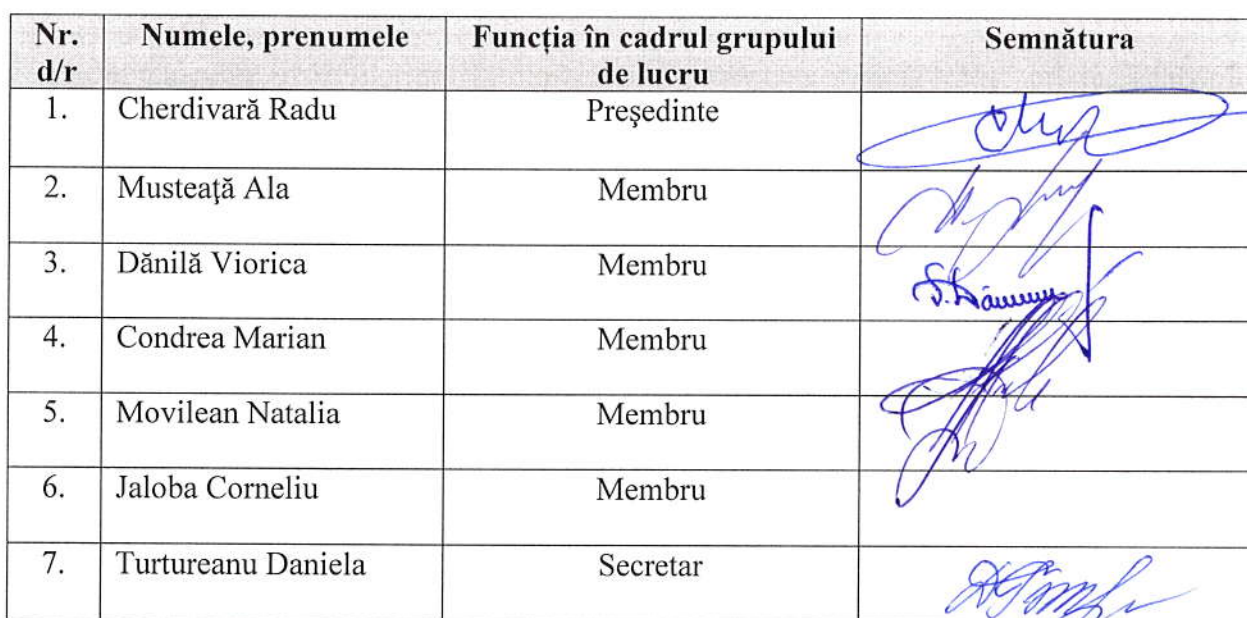 Nr. d/r Numele, prenumele Funcția în cadrul grupului de lucru Semnătura
1. Cherdivară Radu Preşedinte
2. Musteaţă Ala Membru
3. Dănilă Viorica Membru
4. Condrea Marian Membru
5. Movilean Natalia Membru
6. Jaloba Corneliu Membru
7. Turtureanu Daniela Secretar